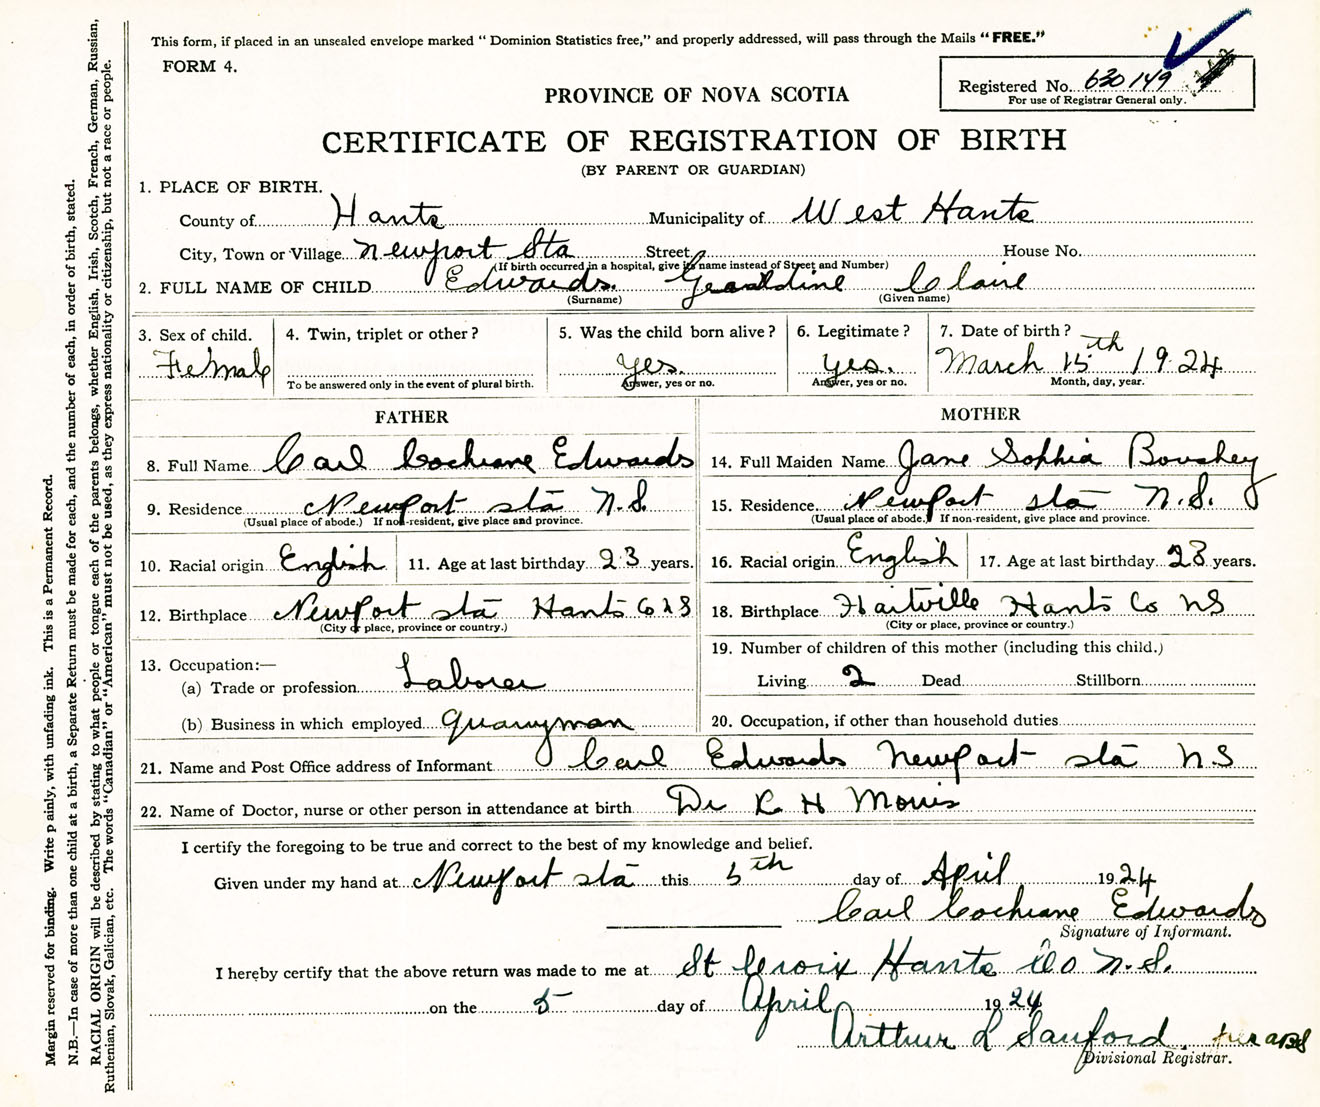 This form, if placed in an unsealed envelope marked "Dominion Statistics free," and properly addressed, will pass through the Mails "FREE."
FORM 4.
Registered No. 630149
For use of Registrar General only.
PROVINCE OF NOVA SCOTIA
CERTIFICATE OF REGISTRATION OF BIRTH
(BY PARENT OR GUARDIAN)
1. PLACE OF BIRTH.
County of Hants Municipality of West Hants
City, Town or Village Newport Sta Street House No.
(If birth occurred in a hospital, give its name instead of Street and Number)
2. FULL NAME OF CHILD Edwards. Geraldine Claire
(Surname) (Given name)
3. Sex of child. 4. Twin, triplet or other? 5. Was the child born alive? 6. Legitimate? 7. Date of birth?
Female Yes. Yes. March 15th 1924
To be answered only in the event of plural birth. Answer, yes or no. Answer, yes or no. Month, day, year.
FATHER
8. Full Name Carl Cochrane Edwards
9. Residence Newport sta N.S.
(Usual place of abode.) If non-resident, give place and province.
10. Racial origin English 11. Age at last birthday 23 years.
12. Birthplace Newport sta Hants Co NS
(City or place, province or country.)
13. Occupation:—
(a) Trade or profession Laborer
(b) Business in which employed quarryman
MOTHER
14. Full Maiden Name Jane Sophia Boushey
15. Residence Newport sta N.S.
(Usual place of abode.) If non-resident, give place and province.
16. Racial origin English 17. Age at last birthday 23 years.
18. Birthplace Hartville Hants Co NS
(City or place, province or country.)
19. Number of children of this mother (including this child.)
Living 2 Dead Stillborn
20. Occupation, if other than household duties
21. Name and Post Office address of Informant Carl Edwards Newport sta NS
22. Name of Doctor, nurse or other person in attendance at birth Dr R H Morris
I certify the foregoing to be true and correct to the best of my knowledge and belief.
Given under my hand at Newport sta this 5th day of April 1924
Carl Cochrane Edwards
Signature of Informant.
I hereby certify that the above return was made to me at St Croix Hants Co N.S.
on the 5 day of April 1924
Arthur L Sanford.
Divisional Registrar.
Margin reserved for binding. Write plainly, with unfading ink. This is a Permanent Record.
N.B.—In case of more than one child at a birth, a Separate Return must be made for each, and the number of each, in order of birth, stated.
RACIAL ORIGIN will be described by stating to what people or tongue each of the parents belongs, whether English, Irish, Scotch, French, German, Russian,
Ruthenian, Slovak, Galician, etc. The words "Canadian" or "American" must not be used, as they express nationality or citizenship, but not a race or people.